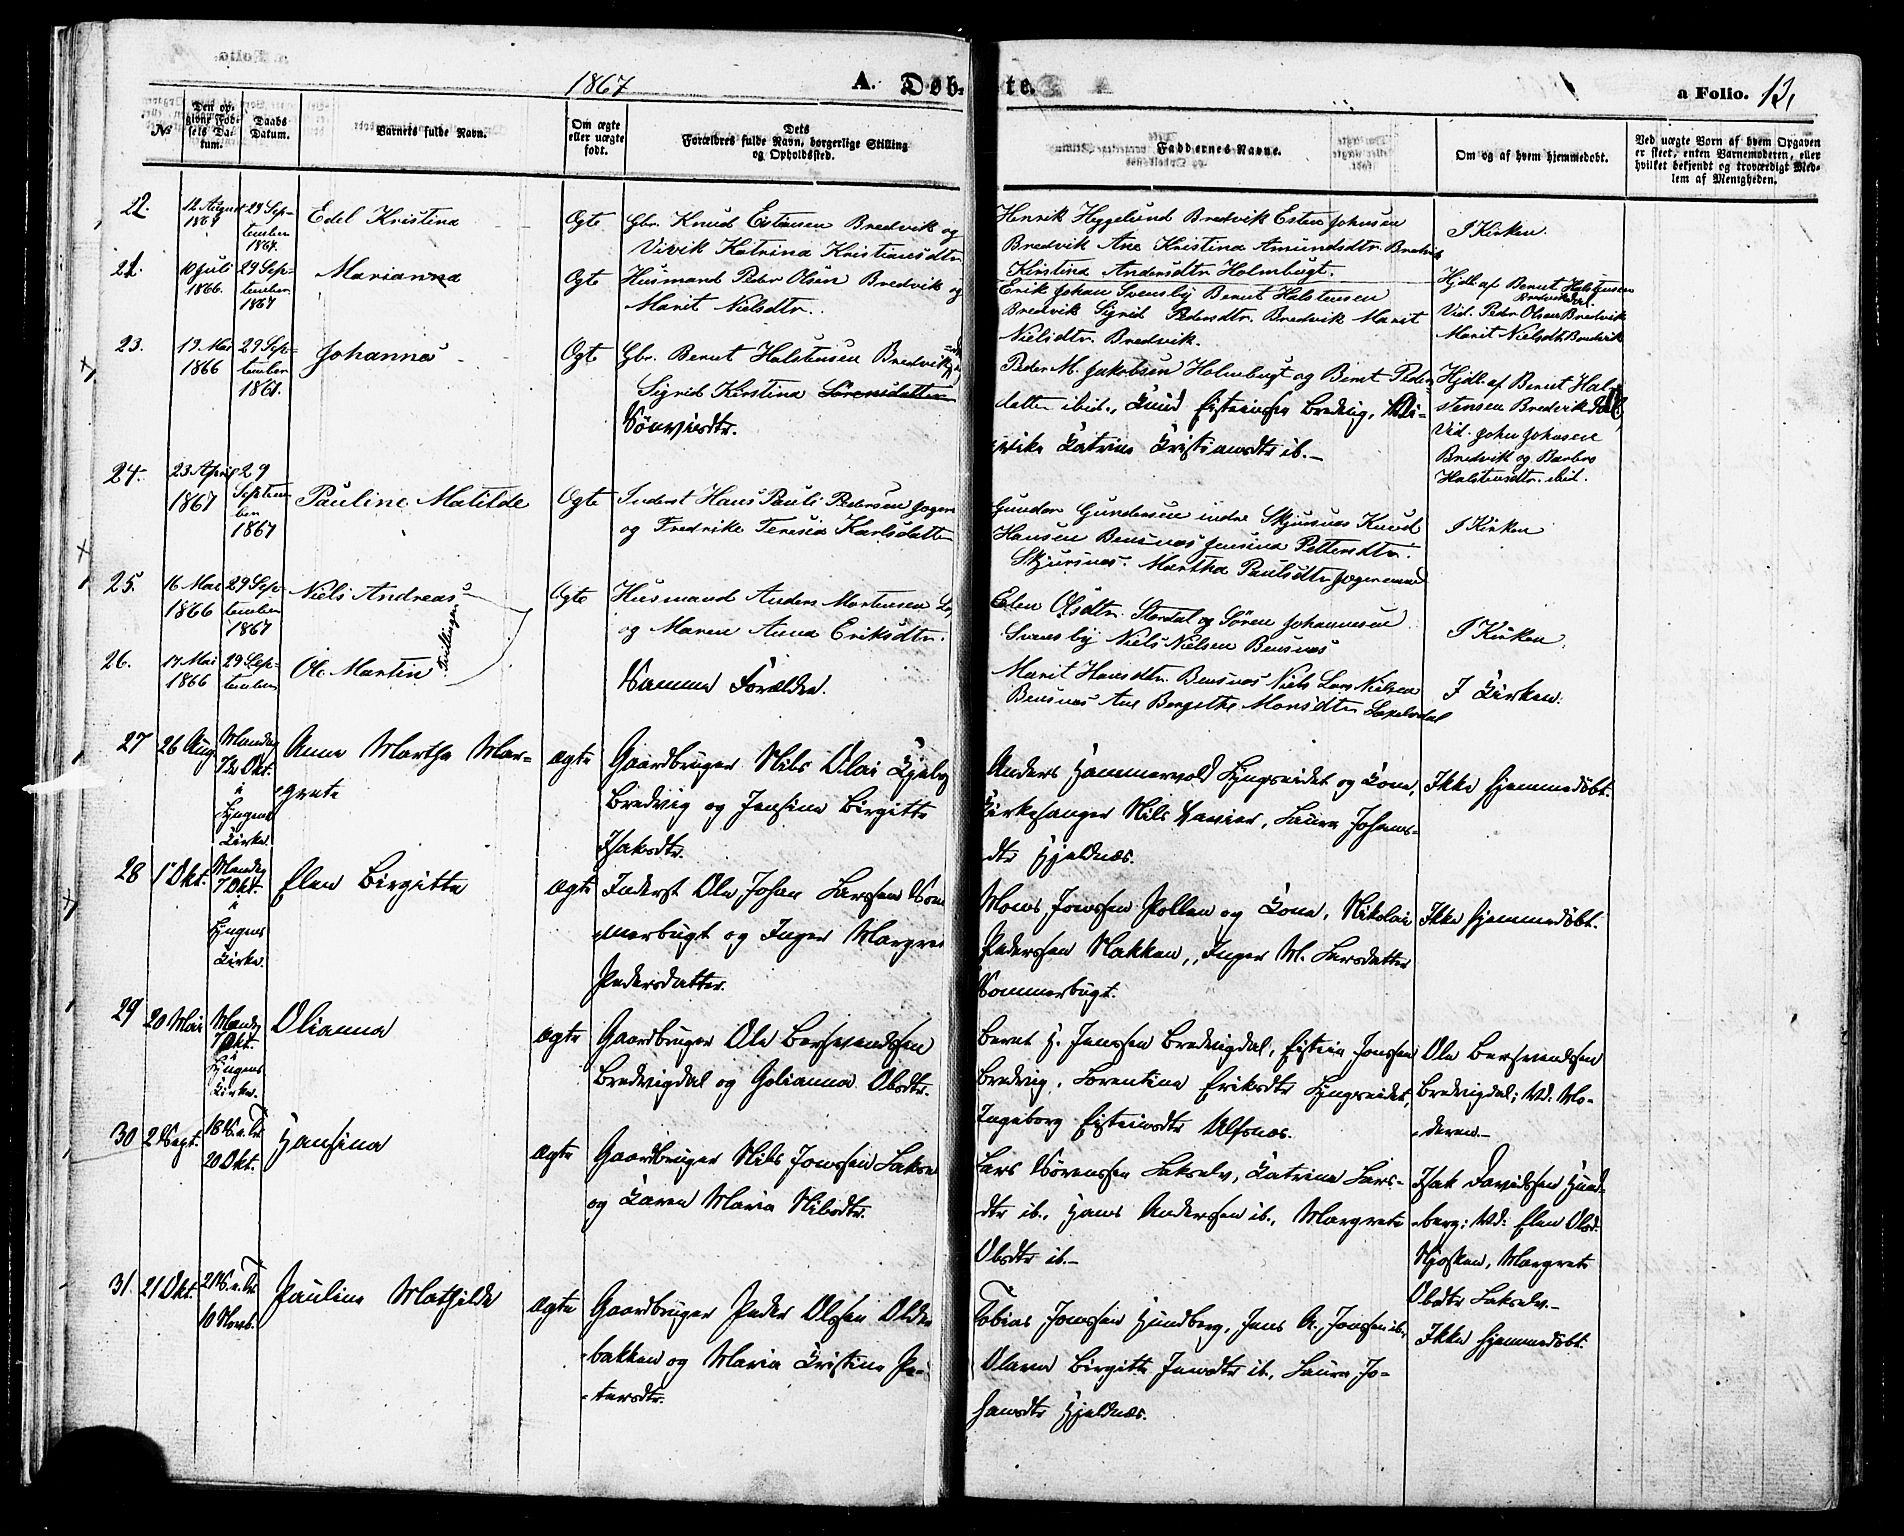 1867
A. Døbte.
a Folio. 12,
№
Den opgivne Fødsels Datum.
Daabs Datum.
Barnets fulde Navn.
Om ægte eller uægte født.
Dets Forældres fulde Navn, borgerlige Stilling og Opholdssted.
Faddernes Navne.
Om og af hvem hjemmedøbt.
Ved uægte Børn af hvem Opgaven er skeet, enten Barnemoderen, eller hvilket bekjendt og troværdigt Medlem af Menigheden.
22.
12 August
29 September 1867.
Edel Kristina
Ogte
Gbr. Knud Bredvik og
Vivik Katrina Kristiansdtr
Henrik Heggelund Bredvik Esten Johnsen
Bredvik Ane Kristina Amundsdtr. Bredvik
Kirstina Andersdtr Holmbugt.
I Kirken.
10 Juli 1866.
29 September 1867
Marianna
Ogte
Husmand Peder Olsen Bredvik og
Marit Nielsdtr.
Erik Johan Svensby Bernt Halstensen
Bredvik Sigrid Pedersdtr. Bredvik Marit
Nielsdtr. Bredvik.
Hjdt. af Bernt Halstensen
Bredvikdal.
Vid. Peder Olsen Bredvik
Marit Nielsdtr Bredvik
23.
1866
29 September
Johannes
Ogte
Gbr. Bernt Halstensen Bredvik
Sigrid Kirstina Sørensdatter
Sønvisdtr.
Peder M. Jakobsen Holmbugt og Beret Peders
datter ibid., Knud Eisteinsen Bredvig,
Katrine Kristiansdtr ib.—
Hjdt. af Bernt Hal-
stensen Bredvikdal,
Vid. John Johnsen
Bredvik og Barbro
Halstensdtr. ibid.
24.
23 April 1867
29 September 1867
Pauline Matilde
Ogte
Inderst Hans Pauli Pedersen
og Fredrike Teresia Karlsdatter
Gunder Gundersen indre Skjursnes Knud
Hansen Bensnes Jensina Pettersdtr.
Skjursnes. Martha Paulsdtr
I Kirken
25.
16 Mai 1866
29 September 1867
Niels Andreas
Tvillinger
Ogte
Husmand Anders Mortensen
og Maren Anna Eriksdtr.
Elen Olsdtr. Stordal og Søren Johannesen
Svensby Niels Nielsen Bensnes
I Kirken.
26.
17 Mai 1866
29 September
Ole Martin
Samme Forældre.
Marit Hansdtr. Bensnes Niels Lars Nielsen
Bensnes Ane Bergethe Monsdtr. Lakselvdal
I Kirken.
27
26 Aug
Mandag 7de Okt. i Lyngens Kirke.
Anne Martha Mar-
grete
ægte
Gaardbruger Nils Olai Kjeley
Bredvig og Jensine Birgitte
Isaksdtr.
Anders Hammervold Lyngseidet og Kone,
Kirkesanger Nils Xavier, Laura Johans-
dtr Hjeldnæs.
Ikke hjemmedøbt.
28
Okt.
Mandag 7 Okt. i Lyngens Kirke.
Elen Birgitta
ægte
Inderst Ole Johan Larssen Som
merbugt og Inger Margrete
Pedersdatter.
Mons Jonssen Pollen og Kone, Nikolai
Pederssen Nakken, Inger M. Larsdatter
Sommerbugt.
Ikke hjemmedøbt.
29
20 Mai
Mandag 7 Okt. i Lyngens Kirke.
Olianna
ægte
Gaardbruger Ole Bersvendssen
Bredvigdal og Golianna Olsdtr.
Bernt H. Jenssen Bredvigdal, Eistein Jonssen
Bredvig, Lorentine Eriksdtr Lyngseidet,
Ingeborg Eisteinsdtr Ulfsnæs.
Ole Bersvendssen
Bredvigdal; Vd. Mo-
deren.—
30
2 Sept.
18 S. e. Tr. 20 Okt.
Hansina
ægte
Gaardbruger Nils Jonssen Lakselv
og Karen Maria Nilsdtr.
Lars Sørenssen Lakselv, Katrine Lars-
dtr ib., Hans Anderssen ib., Margrete
Olsdtr ib.—
Isak Davidssen Hund-
berg; Vd: Elen Olsd.
Njosken, Margrete
Olsdtr Lakselv.—
31.
21 Okt.
21 S. e. Tr. 10 Novb.
Pauline Mathilde
ægte
Gaardbruger Peder Olssen Older
bakken og Maria Kristine Pe-
tersdtr.
Tobias Jonssen Hundberg, Jens A. Jonssen ib.,
Olava Birgitte Jensdtr ib., Laura Jo-
hansdtr Hjeldnæs.
Ikke hjemmedøbt.